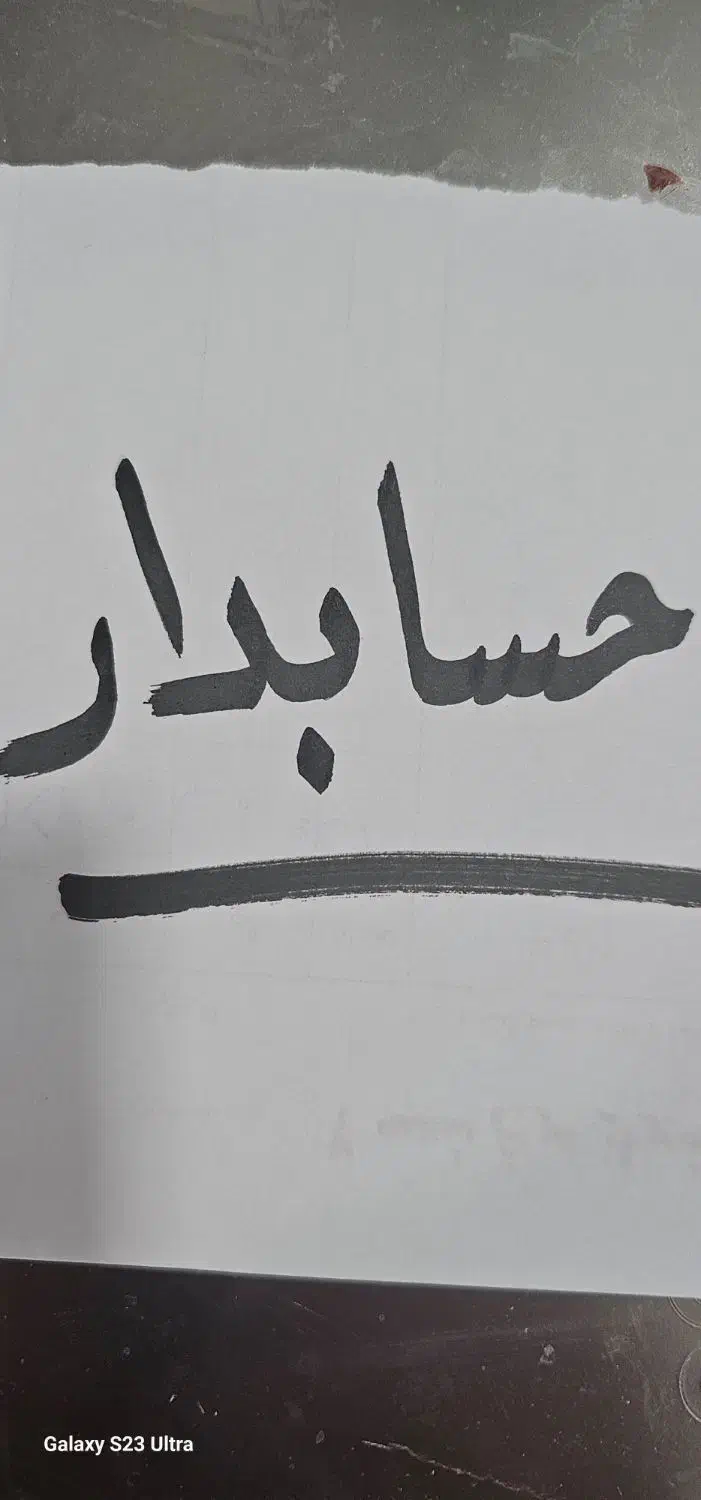 حسابدار
Galaxy S23 Ultra